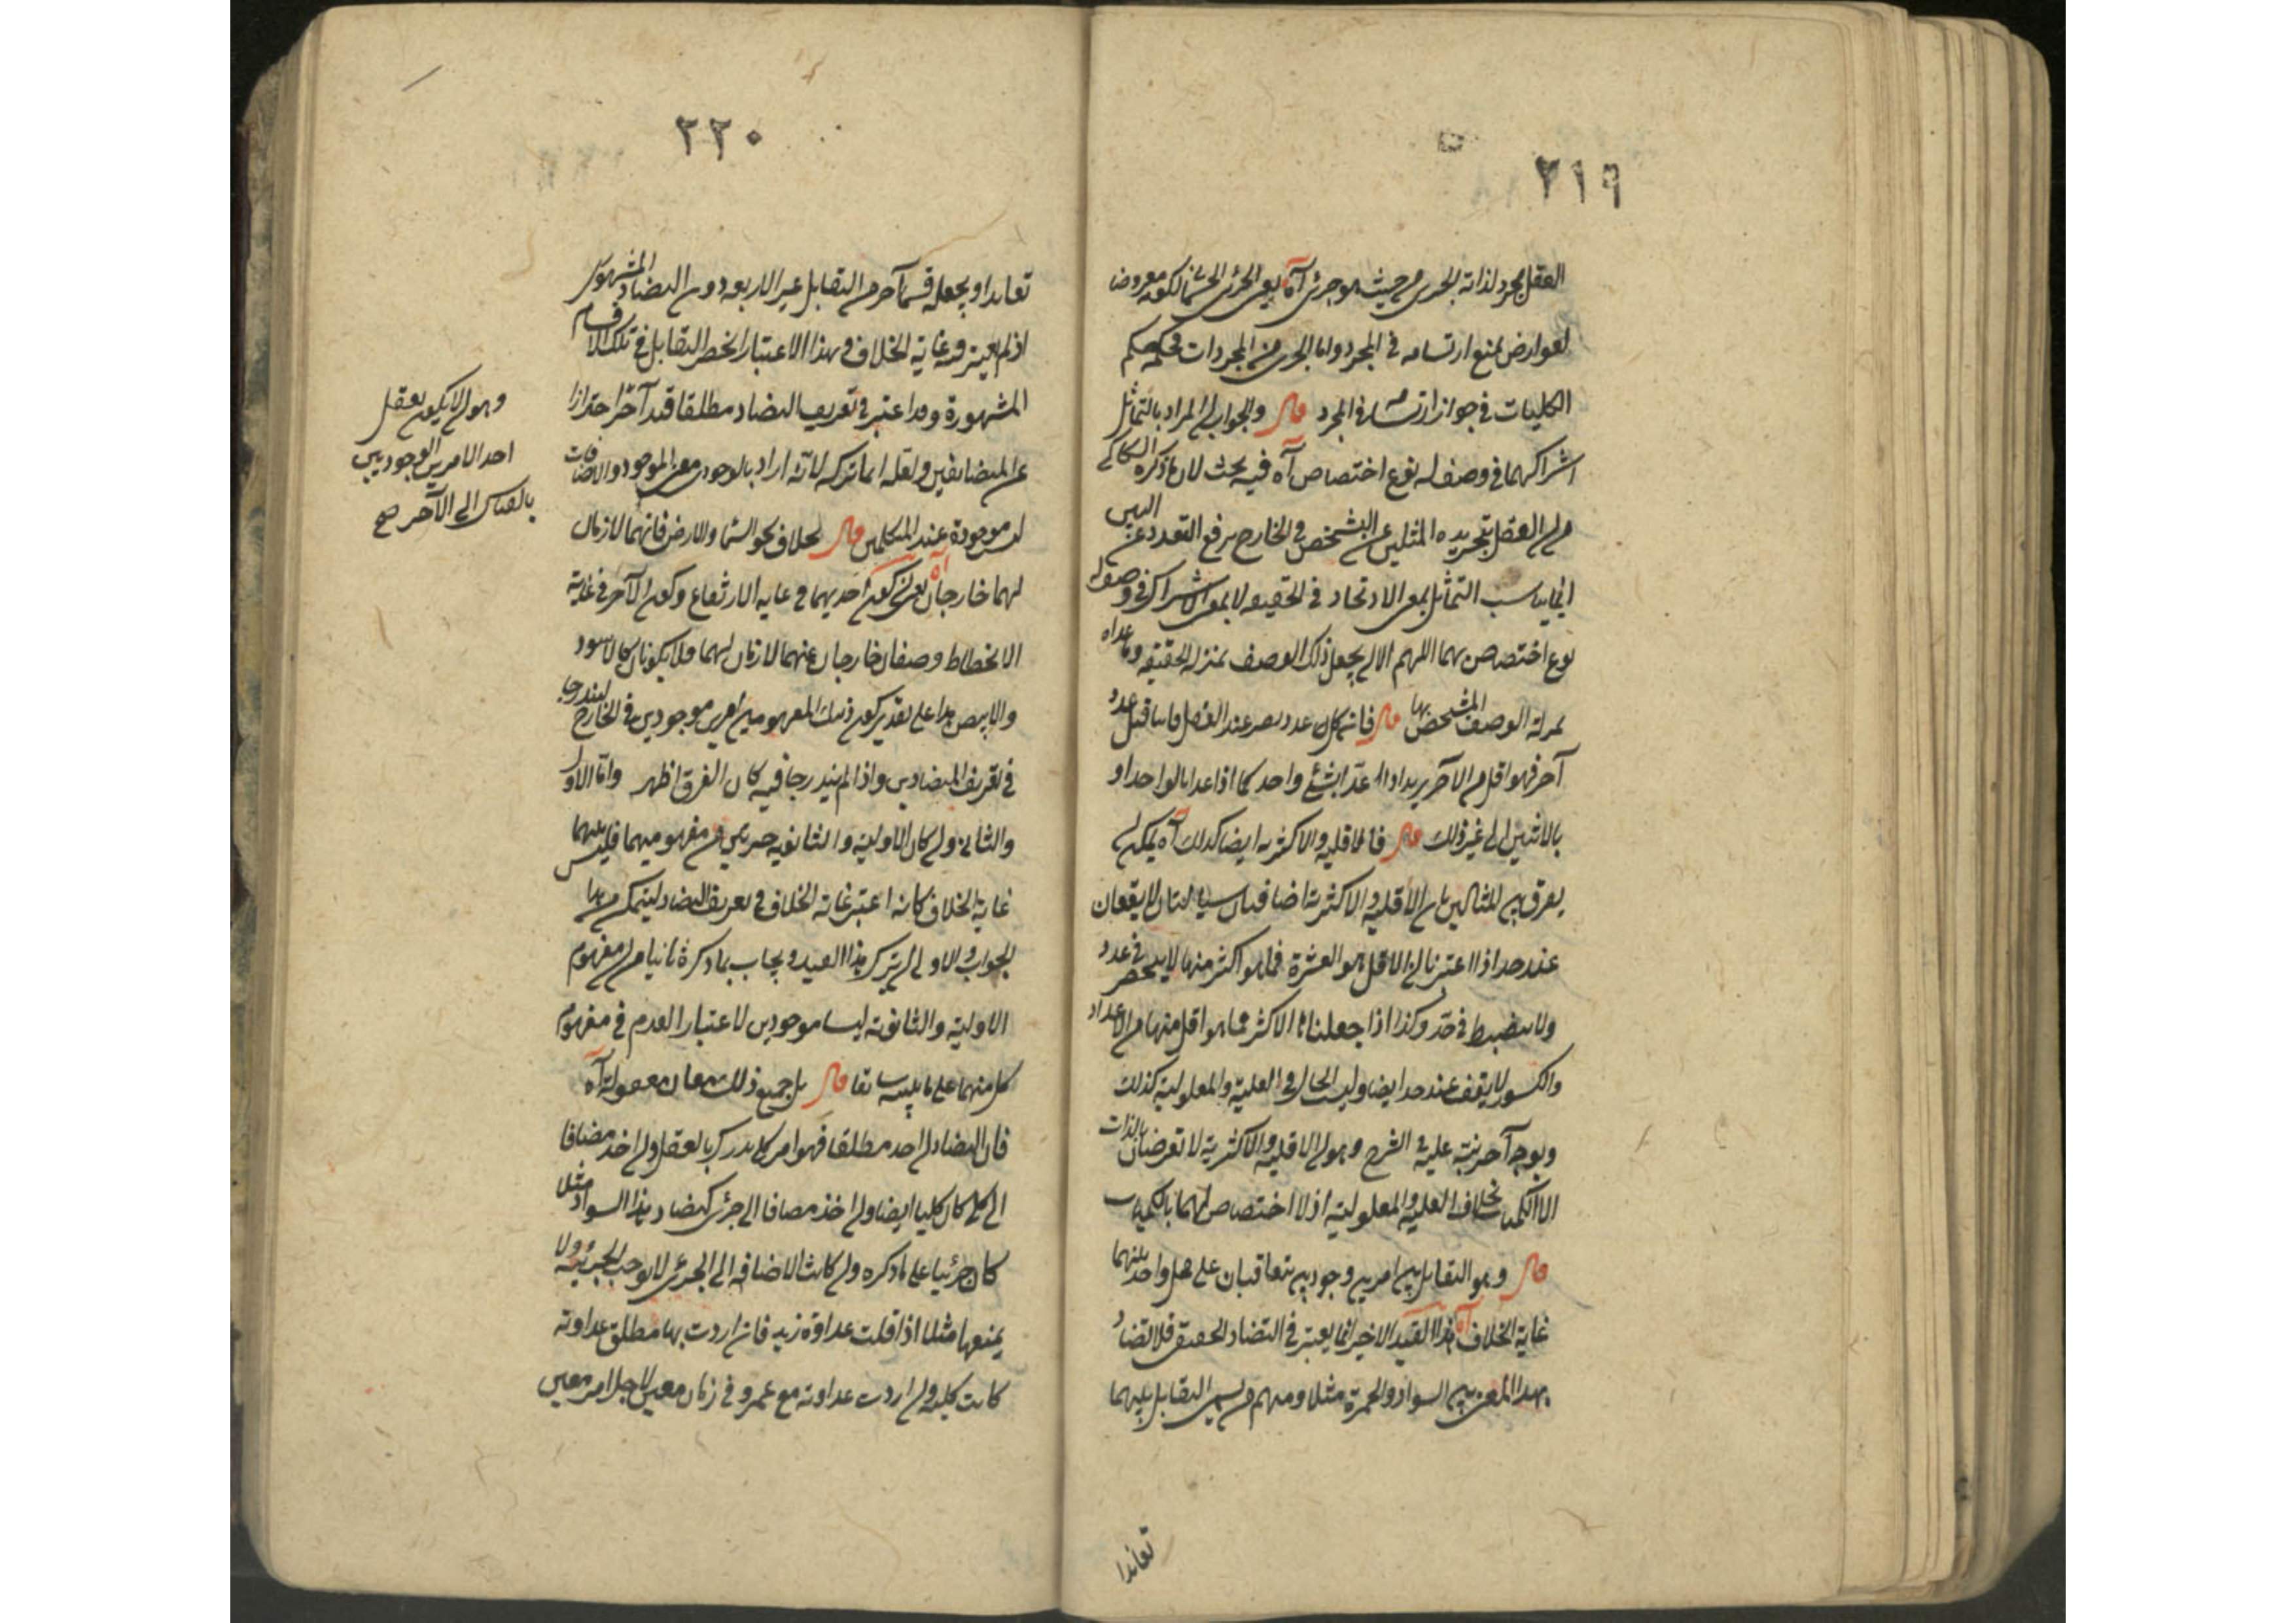 ٢١٩
العقل مجرد لذاته الجزئى من حيث هو جزئى آه يعنى الجزئى الجسمانى لكونه معروضا
لعوارض تمنع ارتسامه فى المجرد واما الجزئى من المجردات فحكمه حكم
الكليات فى جواز ارتسامه فى المجرد قال والجواب ان المراد بالتماثل
اشتراكهما فى وصف له نوع اختصاص آه فيه بحث لان ما ذكره السكاكى
من ان العقل بتجريده المثلين عن التشخص فى الخارج يرفع التعدد عن البين
انما يناسب التماثل بمعنى الاتحاد فى الحقيقه لا بمعنى الاشتراك فى وصف له
نوع اختصاص بهما اللهم الا ان يجعل ذلك الوصف بمنزلة الحقيقه وما عداه
بمنزلة الوصف المشخص بها قال فان كل عدد يصير عند العقل فانيا قبل عدد
آخر فهو اقل من الآخر يريد اذا عدا بشئ واحد كما اذا عدا بالواحد او
بالاثنين الى غير ذلك قال فالاقليه والاكثريه ايضا كذلك آه يمكن ان
يفرق بين المثالين بان الأقلية والاكثرية اضافتان سيالتان لا يقعان
عند حد اذا اعتبرنا ان الاقل هو العشرة فما هو اكثر منها لا ينحصر فى عدد
ولا ينضبط فى حد وكذا اذا جعلناها الاكثر فما هو اقل منها من الاعداد
والكسور لا يقف عند حد ايضا وليت الحال فى العلية والمعلولية كذلك
وبوجه آخر نبه عليه فى الشرح وهو ان الاقلية والاكثرية لا تعرضان بالذات
الا الكم بخلاف العلية والمعلولية اذ لا اختصاص لهما بالكميات
قال وهو التقابل بين امرين وجوديين يتعاقبان على محل واحد بينهما
غاية الخلاف آه هذا القيد الاخير انما يعتبر فى التضاد الحقيقى فلا تضاد
بهذا المعنى بين السواد والحمرة مثلا ومنهم من يسمى التقابل بينهما
تعاندا
٢٢٠
تعاندا ويجعله قسما آخر من التقابل غير الاربعه دون التضاد المشهورى
اذ لم يعتبر فيه غاية الخلاف وبهذا الاعتبار انحصر التقابل فى تلك الاقسام
المشهورة وقد اعتبر فى تعريف التضاد مطلقا قيد آخر احترازا
عن المتضايفين ولعله انما تركه لانه اراد بالوجودى معنى الموجود والاضافات
ليست موجودة عند المتكلمين قال بخلاف نحو السما والارض فانهما لازمان
لهما خارجان آه يعنى ان كون احديهما فى غاية الارتفاع وكون الآخر فى غاية
الانحطاط وصفان خارجان عنهما لازمان لهما فلا يكونان كالاسود
والابيض هذا على تقدير كون ذينك المفهومين امرين موجودين فى الخارج ليندرجا
فى تعريف المتضادين واذا لم يندرجا فيه كان الفرق اظهر واما الاول
والثانى وان كان الاولية والثانوية جزئين من مفهوميهما فليس بينهما
غاية الخلاف كانه اعتبر غاية الخلاف فى تعريف التضاد ليتمكن من هذا
الجواب والاولى ان يترك هذا القيد ويجاب بما ذكره ثانيا من ان مفهوم
الاولية والثانوية ليسا موجودين لاعتبار العدم فى مفهوم
كل منهما على ما بينه سابقا قال بل جميع ذلك معان معقولة آه
فان التضاد ان اخذ مطلقا فهو امر كلى يدرك بالعقل وان اخذ مضافا
الى كلى كان كليا ايضا وان اخذ مضافا الى جزئى كتضاد هذا السواد مثلا
كان جزئيا على ما ذكره وان كانت الاضافه الى الجزئى لا توجب الجزئية ولا
يمنعها مثلا اذا قلت عداوة زيد فان اردت بها مطلق عداوته
كانت كلية وان اردت عداوته مع عمرو فى زمان معين لاجل امر معين
وهو ان لا يكون تعقل
احد الامرين الوجوديين
بالقياس الى الآخر صح